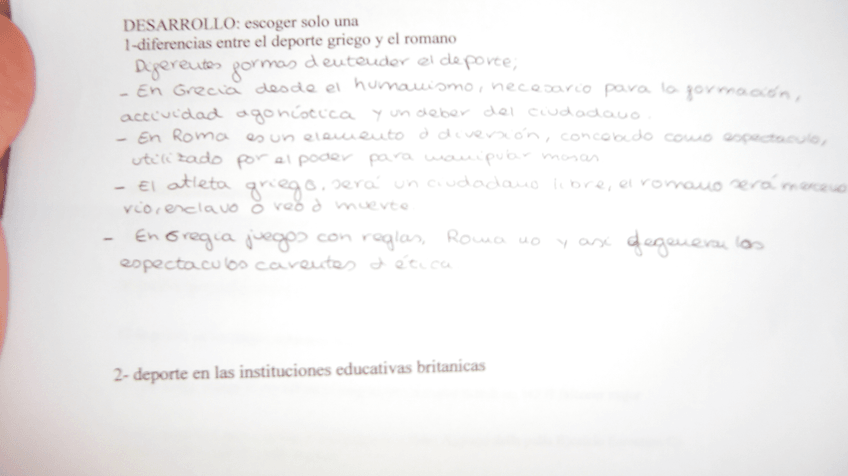 DESARROLLO: escoger solo una
1-diferencias entre el deporte griego y el romano
Diferentes formas d entender el deporte;
- En Grecia desde el humanismo, necesario para la formación,
actividad agonística y un deber del ciudadano.
- En Roma es un elemento d diversión, concebido como espectaculo,
utilizado por el poder para manipular masas
- El atleta griego, será un ciudadano libre, el romano será mercena
rio, esclavo o reo d muerte
- En Gregia juegos con reglas, Roma no y asi degeneran los
espectaculos carentes d ética
2- deporte en las instituciones educativas britanicas